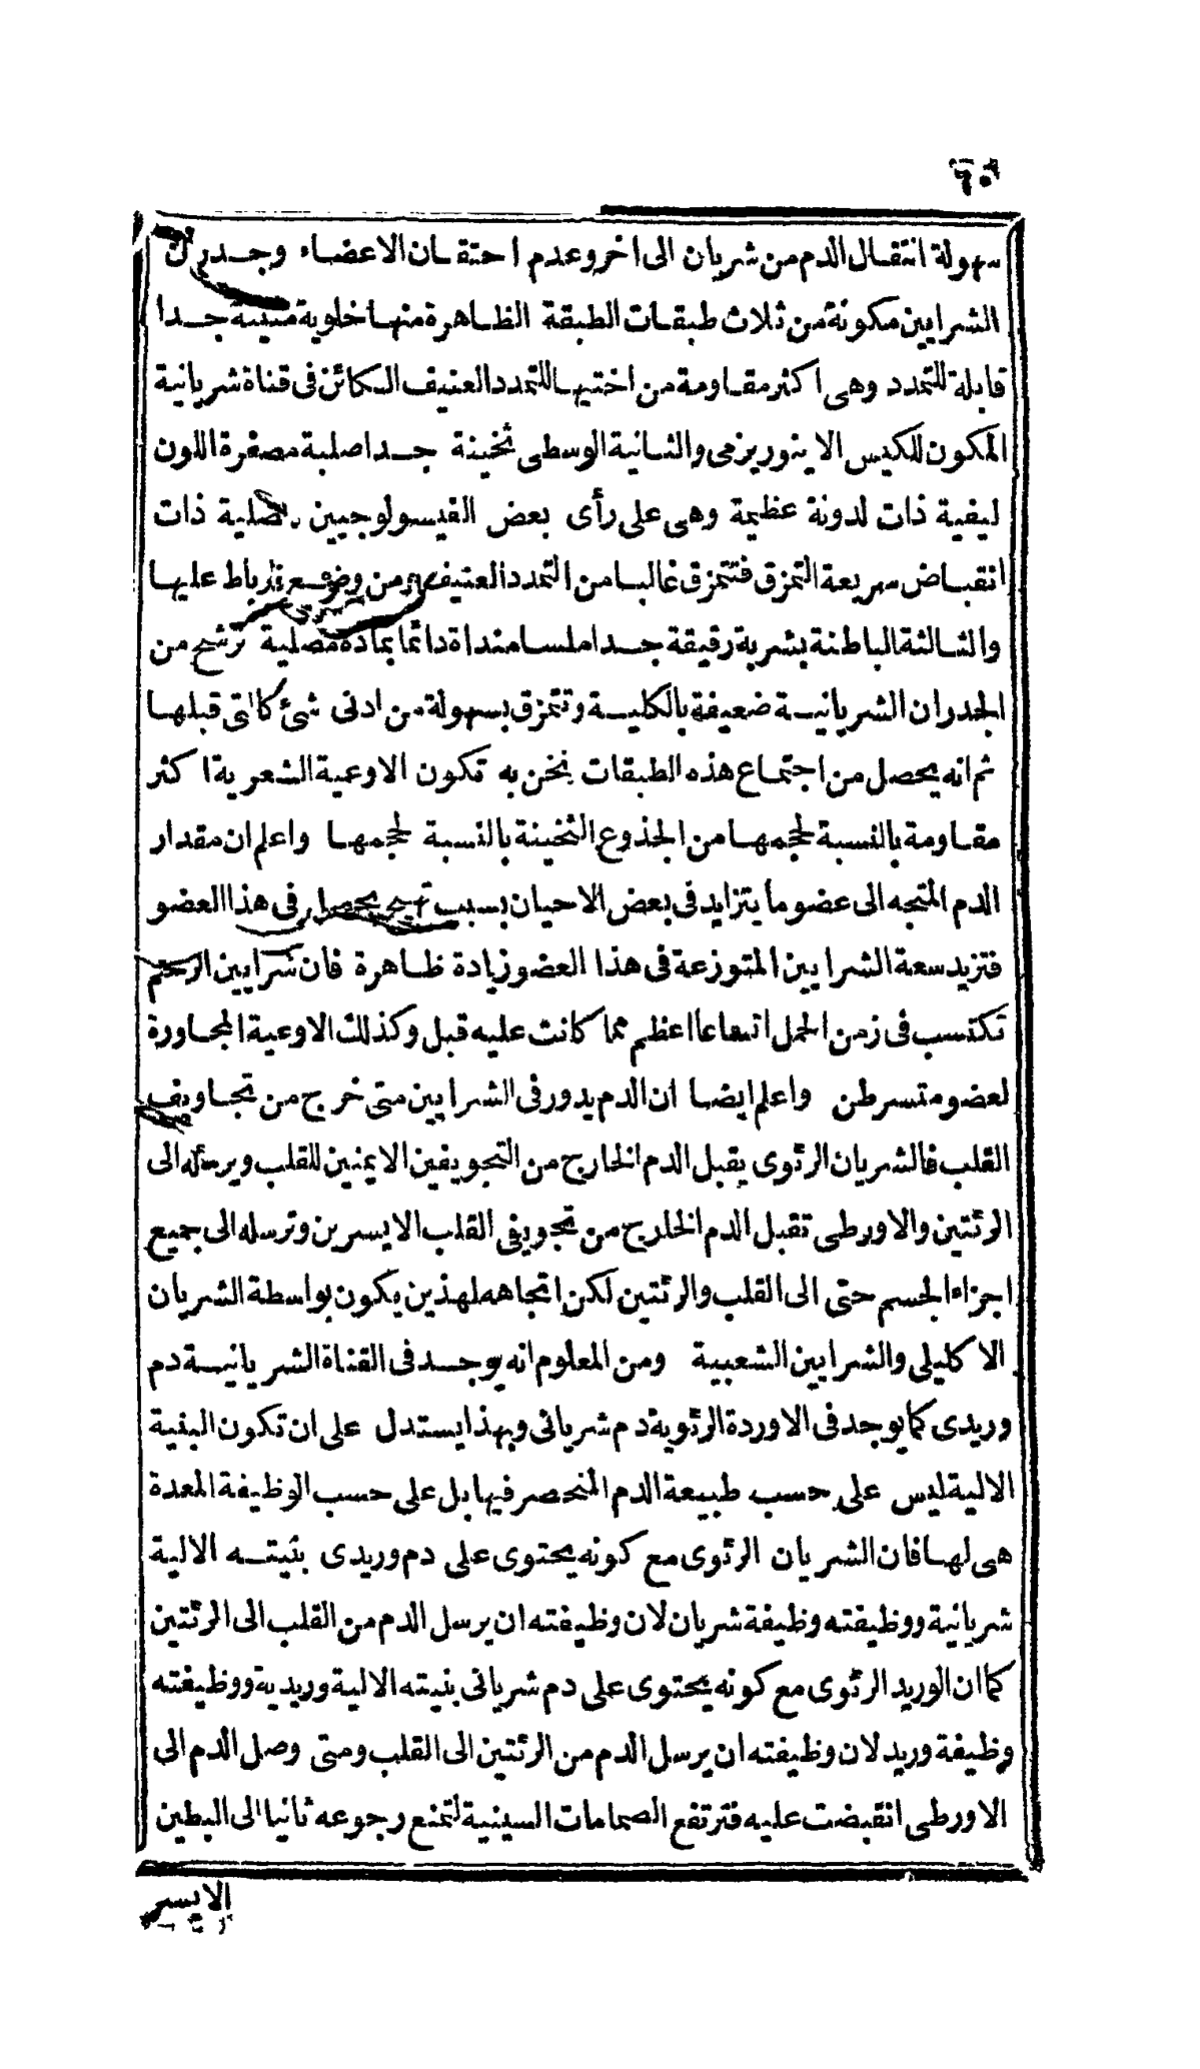 سهولة انتقال الدم من شريان الى اخر وعدم احتقان الاعضاء وجدران
الشرايين مكونة من ثلاث طبقات الطبقة الظاهرة منها خلوية متينة جدا
قابلة للتمدد وهى اكثر مقاومة من اختيها للتمدد العنيف الكائن فى قناة شريانية
المكون للكيس الاينوريزمى والثانية الوسطى ثخينة جدا صلبة مصفرة اللون
ليفية ذات لدونة عظيمة وهى على رأى بعض الفيسولوجيين عضلية ذات
انقباض سريعة التمزق فتتمزق غالبا من التمدد العنيف ومن وضع رباط عليها
والثالثة الباطنة بشربة رقيقة جدا ملسا منداة دائما بمادة مصلية ترشح من
الجدران الشريانية ضعيفة بالكلية وتتمزق بسهولة من ادنى شئ كالتى قبلها
ثم انه يحصل من اجتماع هذه الطبقات ثخن به تكون الاوعية الشعرية اكثر
مقاومة بالنسبة لحجمها من الجذوع الثخينة بالنسبة لحجمها واعلم ان مقدار
الدم المتجه الى عضو ما يتزايد فى بعض الاحيان بسبب تهيج يحصل فى هذا العضو
فتزيد سعة الشرايين المتوزعة فى هذا العضو زيادة ظاهرة فان شرايين الرحم
تكتسب فى زمن الحمل اتساعا اعظم مما كانت عليه قبل وكذلك الاوعية المجاورة
لعضو متسرطن واعلم ايضا ان الدم يدور فى الشرايين متى خرج من تجاويف
القلب فالشريان الرئوى يقبل الدم الخارج من التجويفين الايمنين للقلب ويرسله الى
الرئتين والاورطى تقبل الدم الخارج من تجويفى القلب الايسرين وترسله الى جميع
اجزاء الجسم حتى الى القلب والرئتين لكن اتجاهه لهذين يكون بواسطة الشريان
الاكليلى والشرايين الشعبية ومن المعلوم انه يوجد فى القناة الشريانية دم
وريدى كما يوجد فى الاوردة الرئوية دم شريانى وبهذا يستدل على ان تكون البنية
الالية ليس على حسب طبيعة الدم المنحصر فيها بل على حسب الوظيفة المعدة
هى لها فان الشريان الرئوى مع كونه يحتوى على دم وريدى بنيته الالية
شريانية ووظيفته وظيفة شريان لان وظيفته ان يرسل الدم من القلب الى الرئتين
كما ان الوريد الرئوى مع كونه يحتوى على دم شريانى بنيته الالية وريدية ووظيفته
وظيفة وريد لان وظيفته ان يرسل الدم من الرئتين الى القلب ومتى وصل الدم الى
الاورطى انقبضت عليه فترتفع الصمامات السينية لتمنع رجوعه ثانيا الى البطين
الايسر